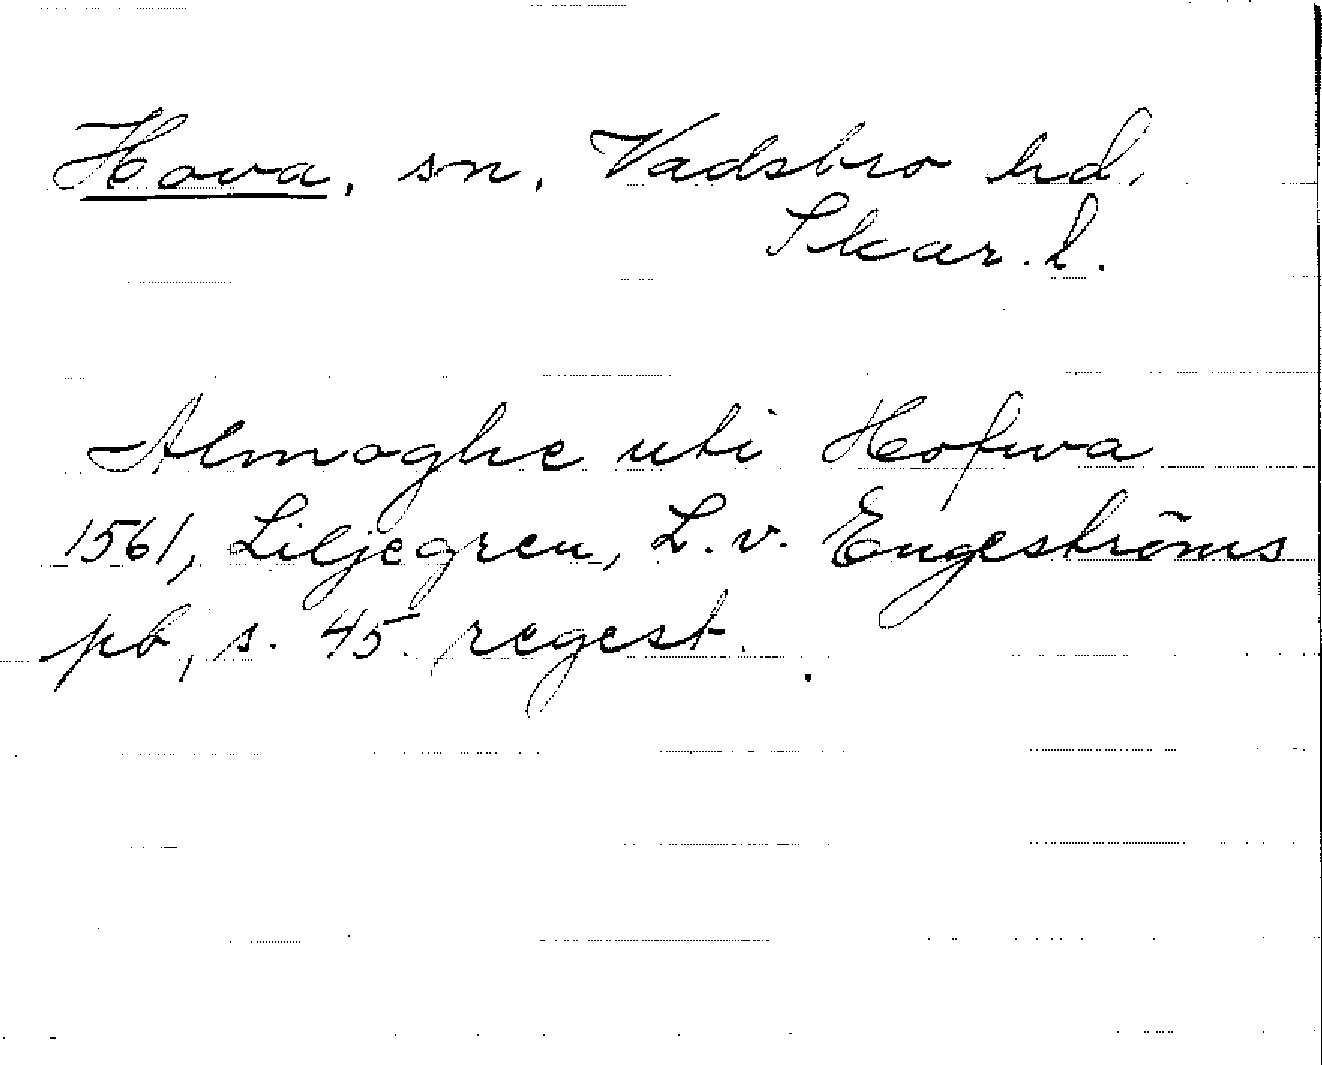 Hova, sn, Vadsbro hd,
Skar. l.
Almoghe uti Hofwa
1561, Liljegren, L. v. Engeströms
pb, s. 45. regest.